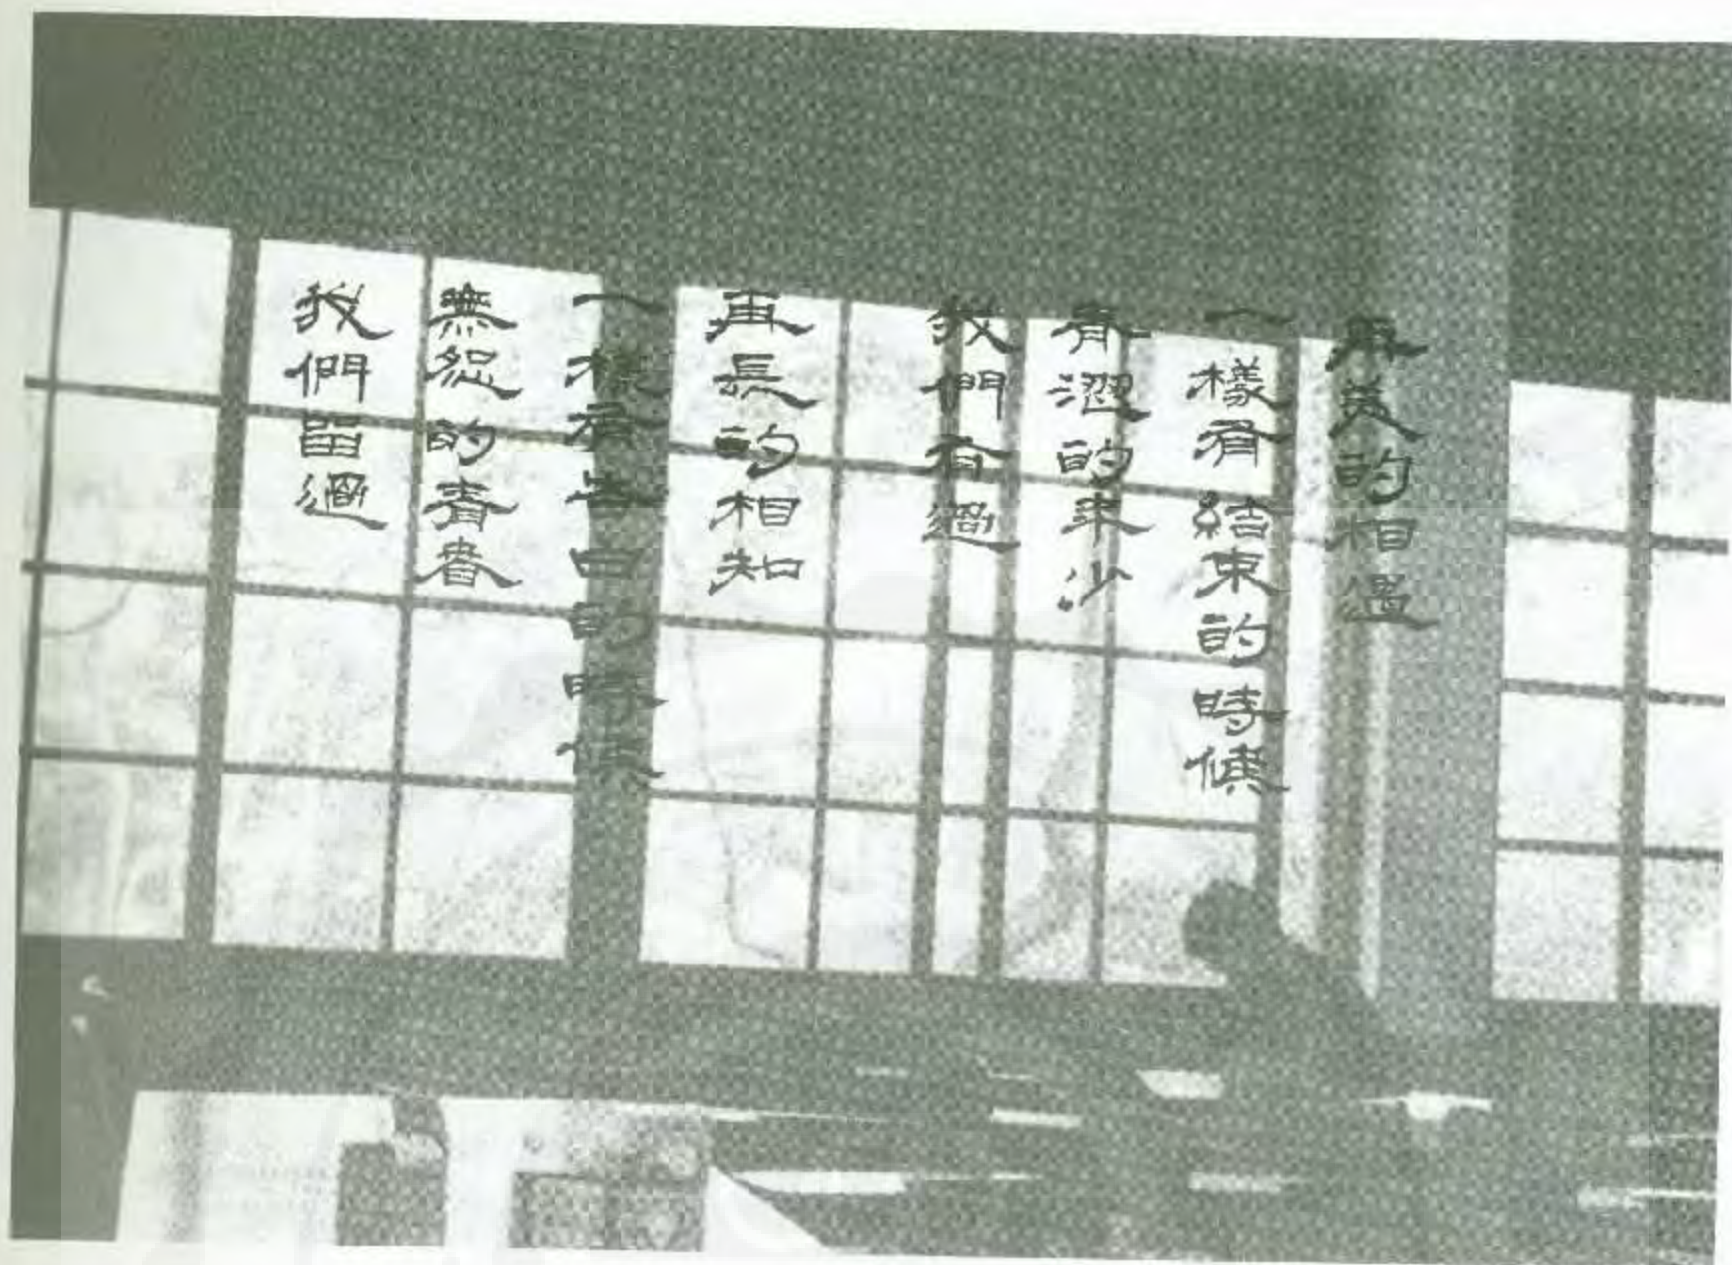 再美的相遇
一樣有結束的時候
青澀的年少
我們有過
再長的相知
一樣有告白的時候
無怨的青春
我們留過